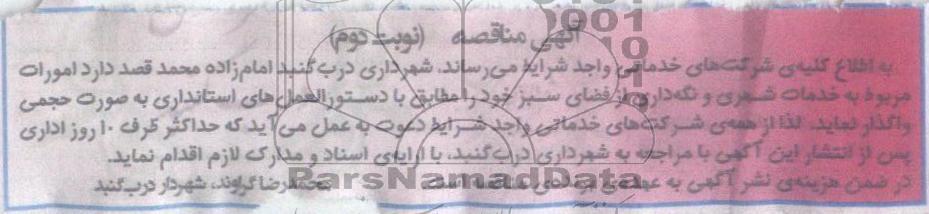 آگهی مناقصه (نوبت دوم)
به اطلاع کلیه‌ی شرکت‌های خدماتی واجد شرایط می‌رساند. شهرداری درب‌گنبد امامزاده محمد قصد دارد امورات
مربوط به خدمات شهری و نگه‌داری از فضای سبز خود را مطابق با دستورالعمل‌های استانداری به صورت حجمی
واگذار نماید. لذا از همه‌ی شرکت‌های خدماتی واجد شرایط دعوت به عمل می‌آید که حداکثر ظرف ۱۰ روز اداری
پس از انتشار این آگهی با مراجعه به شهرداری درب‌گنبد، با ارایه‌ی اسناد و مدارک لازم اقدام نماید.
در ضمن هزینه‌ی نشر آگهی به عهده‌ی برنده‌ی مناقصه است. محمدرضا گراوند، شهردار درب‌گنبد
ParsNamadData